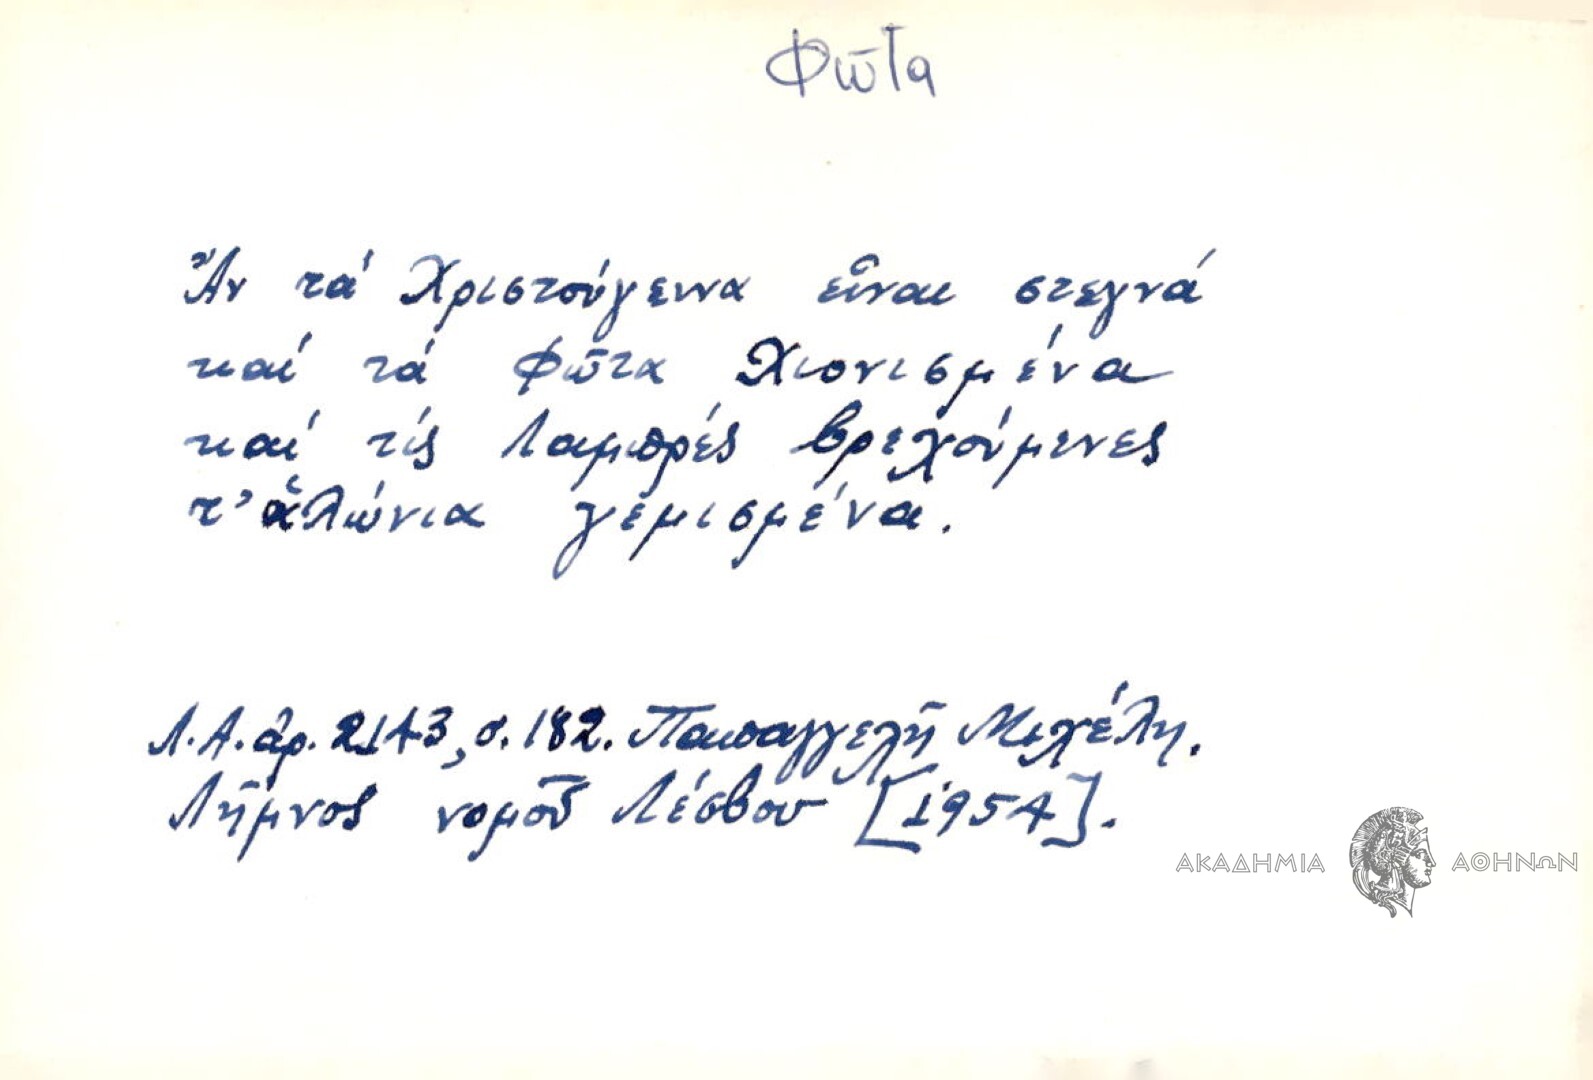 Φῶτα
Ἄν τά Χριστούγεννα εἶναι στεγνά
καί τά Φῶτα Χιονισμένα
καί τίς Λαμπρές βρεχούμενες
τ' ἁλώνια γεμισμένα.
Λ.Α. ἀρ. 2143, σ. 182. Παπαγγελῆ Μιχέλη.
Λῆμνος νομοῦ Λέσβου [1954].
ΑΚΑΔΗΜΙΑ ΑΘΗΝΩΝ